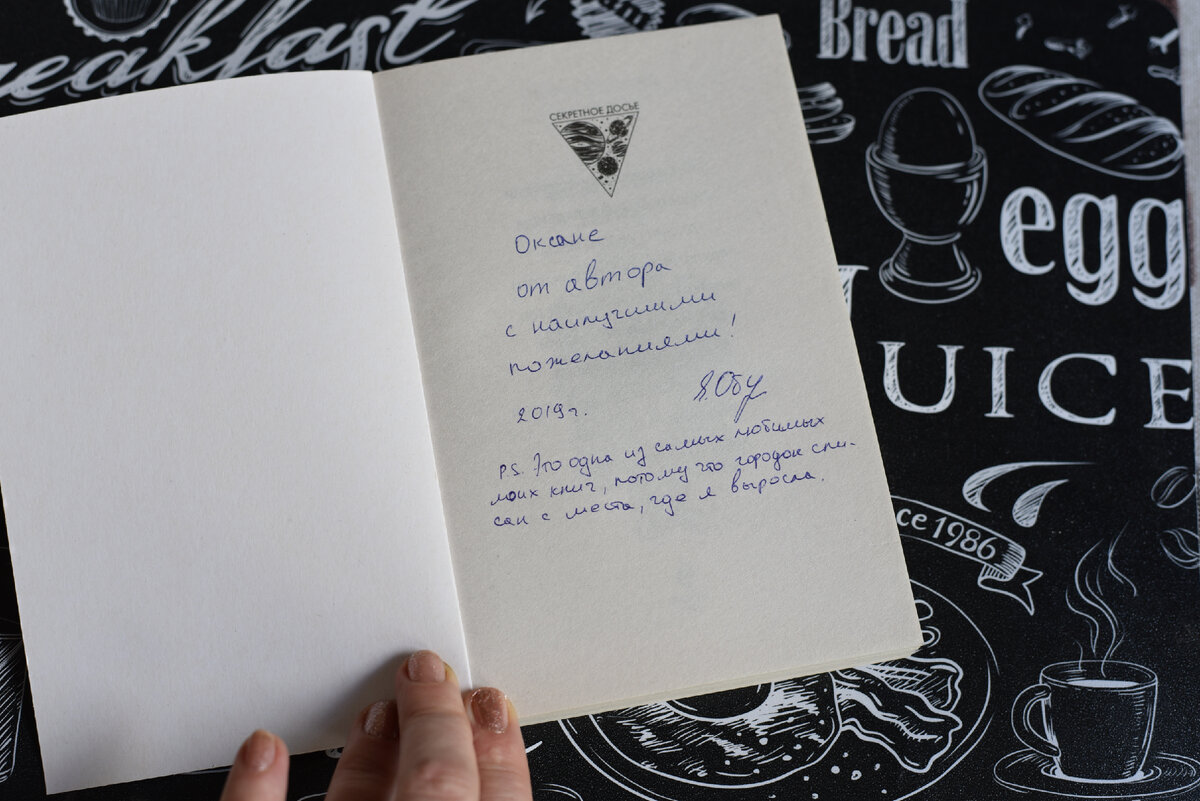 reakfast
Bread
egg
UICE
ce 1986
СЕКРЕТНОЕ ДОСЬЕ
Оксане
от автора
с наилучшими
пожеланиями!
2019г.
P.S. Это одна из самых любимых
моих книг, потому что городок спи-
сан с места, где я выросла.